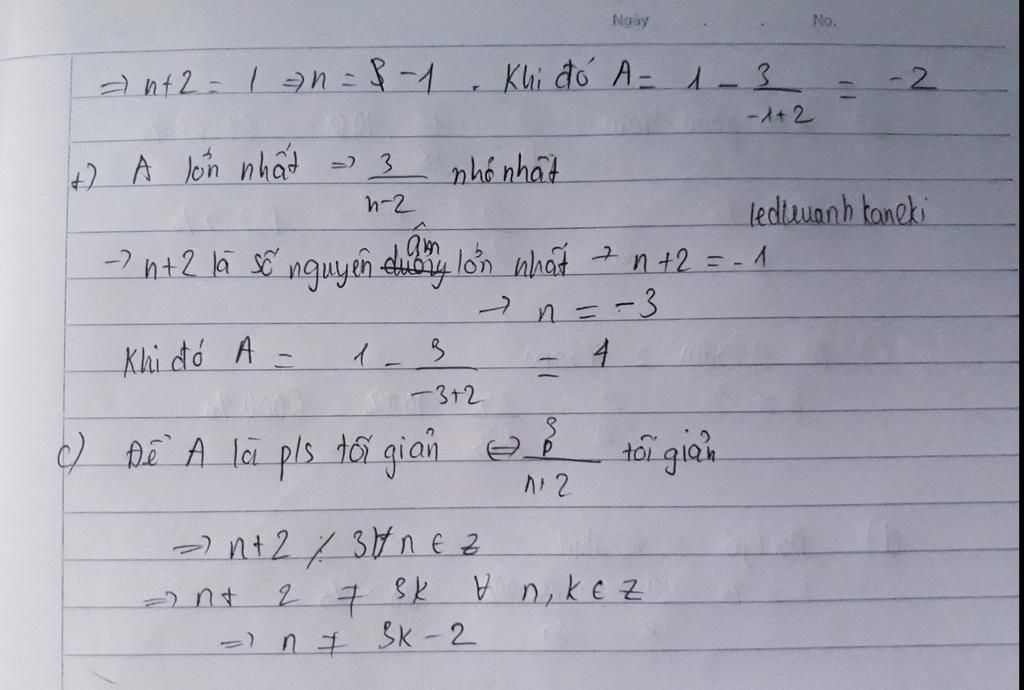 Ngày . . No.
=> n+2 = 1 => n = -1 . Khi đó A = 1 - 3/(-1+2) = -2
+) A lớn nhất => 3/(n-2) nhỏ nhất
ledieuanh kaneki
-> n+2 là số nguyên âm lớn nhất -> n+2 = -1
-> n = -3
Khi đó A = 1 - 3/(-3+2) = 4
c) Để A là p/s tối giản <=> 3/(n+2) tối giản
=> n+2 ⋮̸ 3 ∀ n ∈ Z
=> n+ 2 ≠ 3k ∀ n, k ∈ Z
=> n ≠ 3k - 2